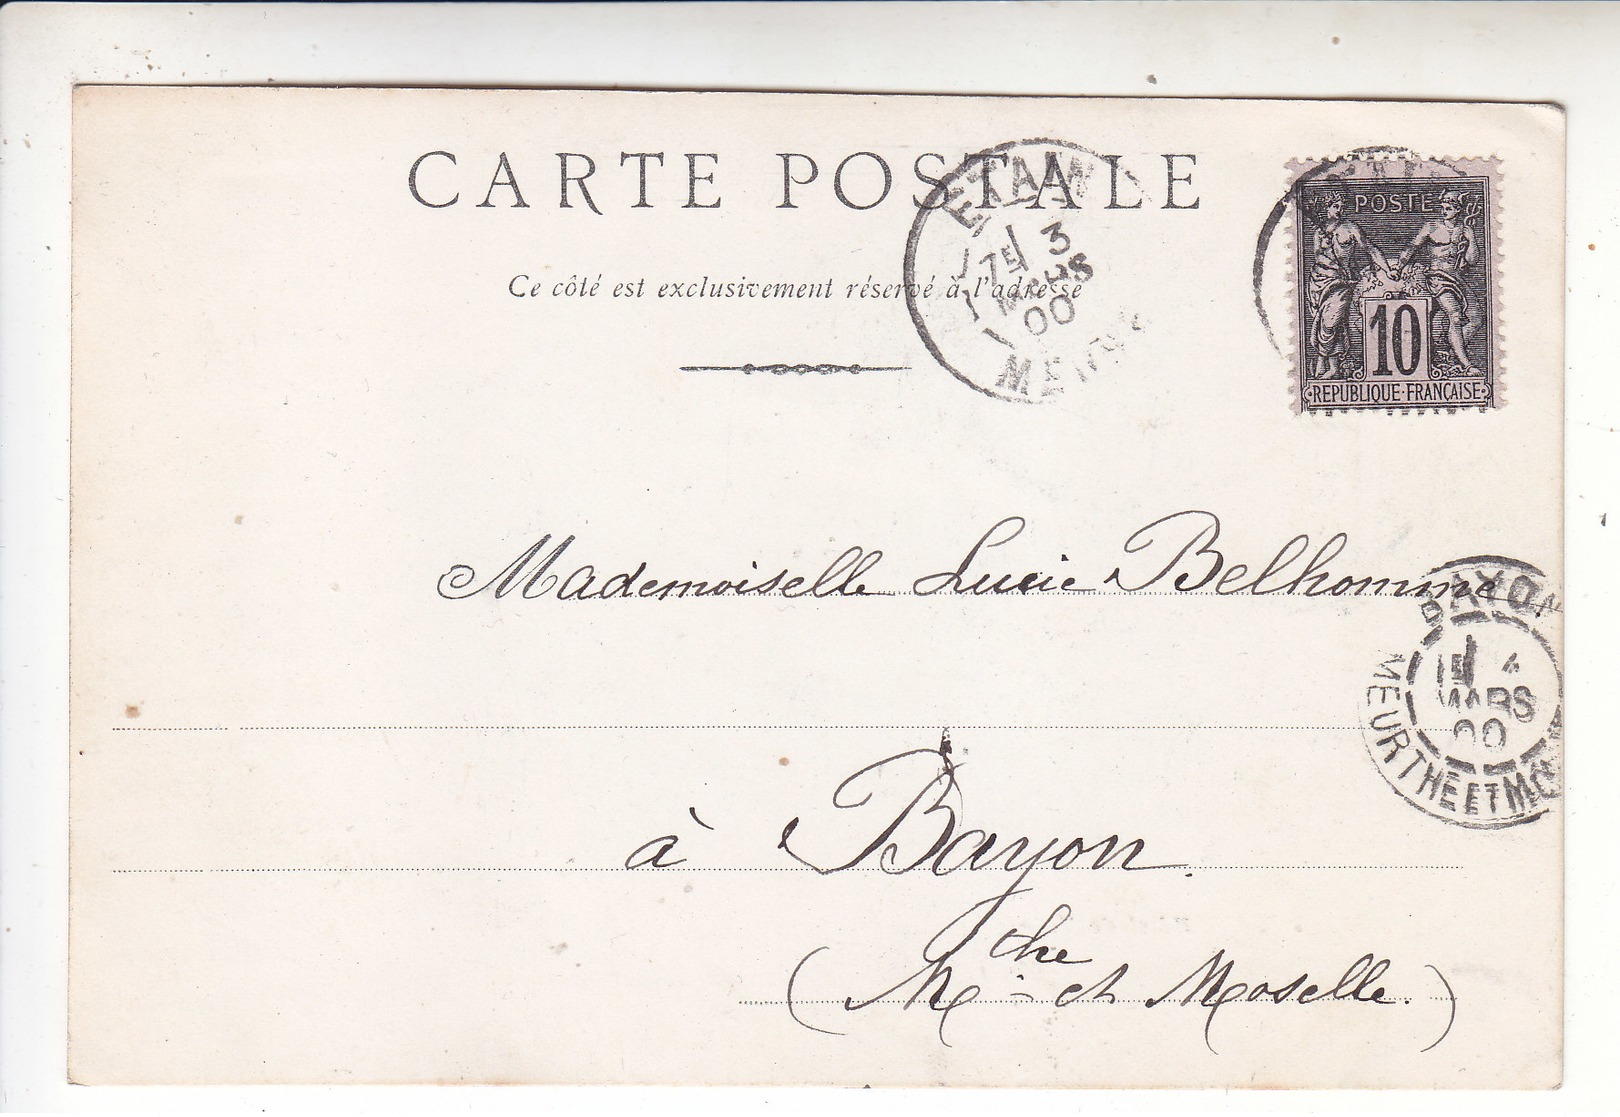 CARTE POSTALE
Ce côté est exclusivement réservé à l'adresse
ETAIN
7E 3
MARS
00
POSTE
10
REPUBLIQUE FRANÇAISE
Mademoiselle Lucie Belhomme
BAYON
1E 4
MARS
00
MEURTHE ET MO
à Bayon.
(Mthe et Moselle.)